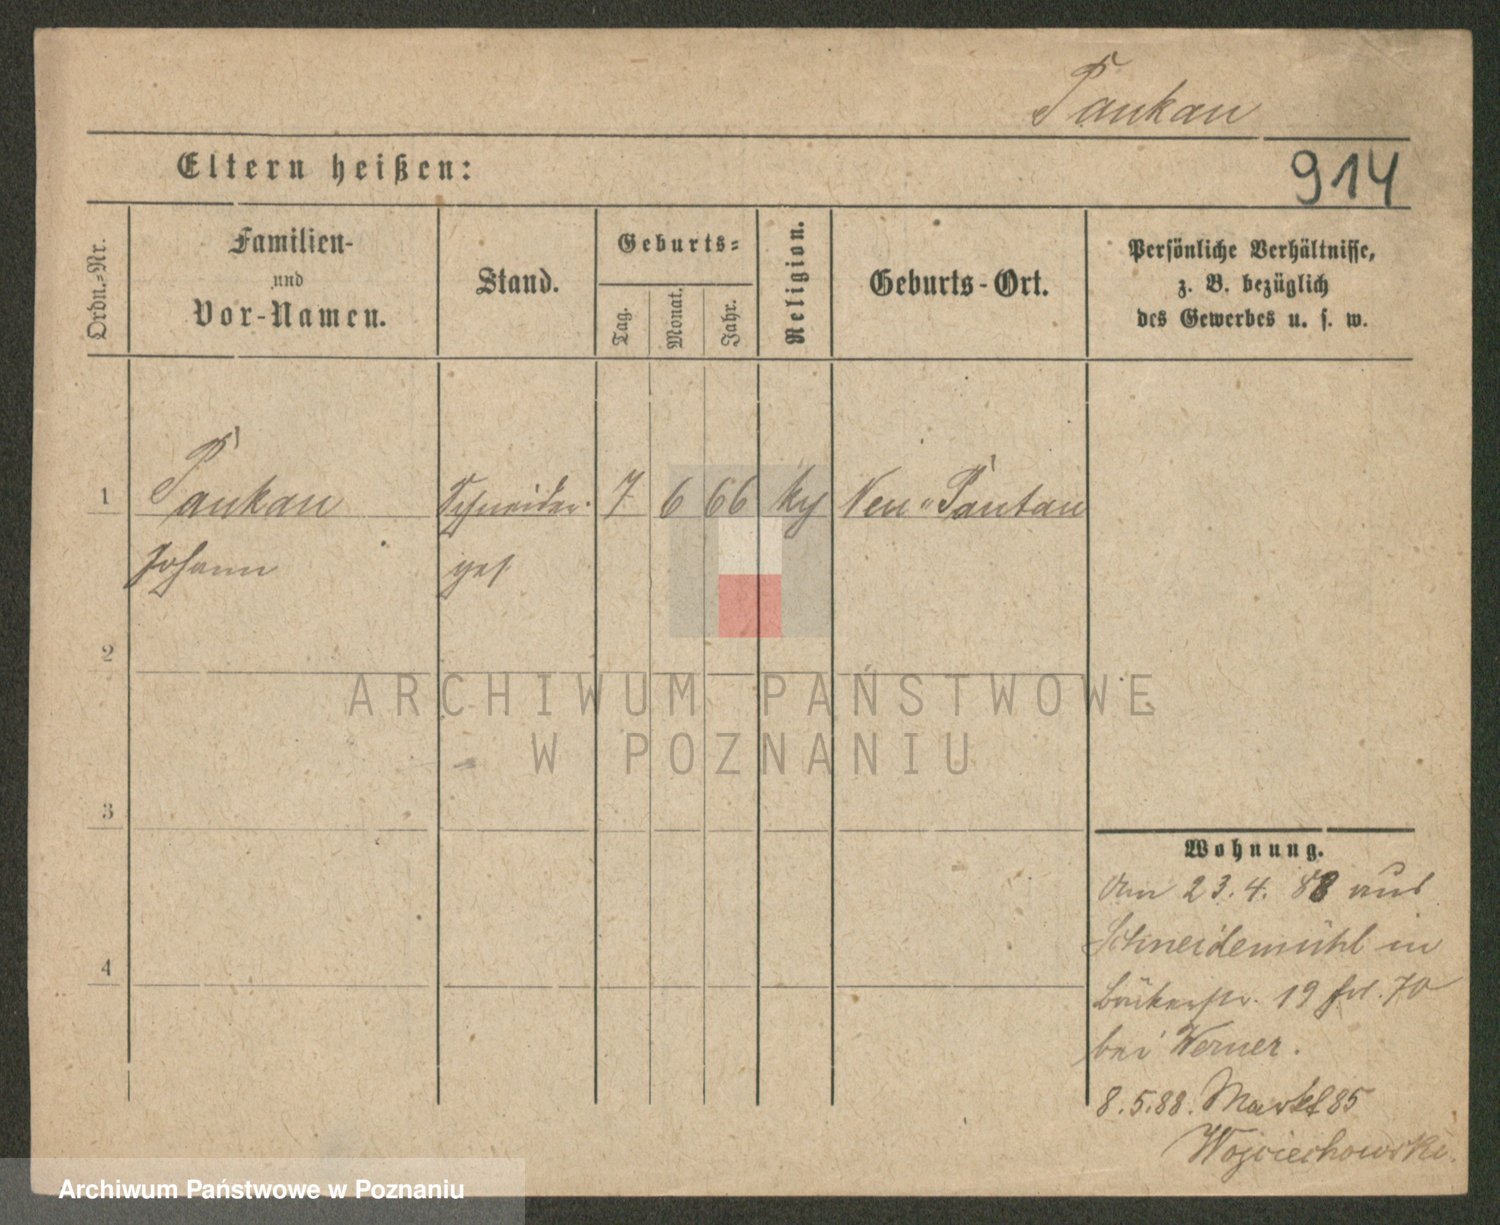 Pankau
Eltern heißen:
914
Ordn.-Nr.
Familien-
und
Vor-Namen.
Stand.
Geburts-
Tag.
Monat.
Jahr.
Religion.
Geburts-Ort.
Persönliche Verhältnisse,
z. B. bezüglich
des Gewerbes u. s. w.
1 Pankau Schneider- 7 6 66 Neu-
Johann ges
2
ARCHIWUM PAŃSTWOWE
W POZNANIU
3
Wohnung.
Am 23.4.88 aus
Schneidemühl in
4
19 70
bei Werner.
8.5.88. Markt 85
Wojciechowski.
Archiwum Państwowe w Poznaniu